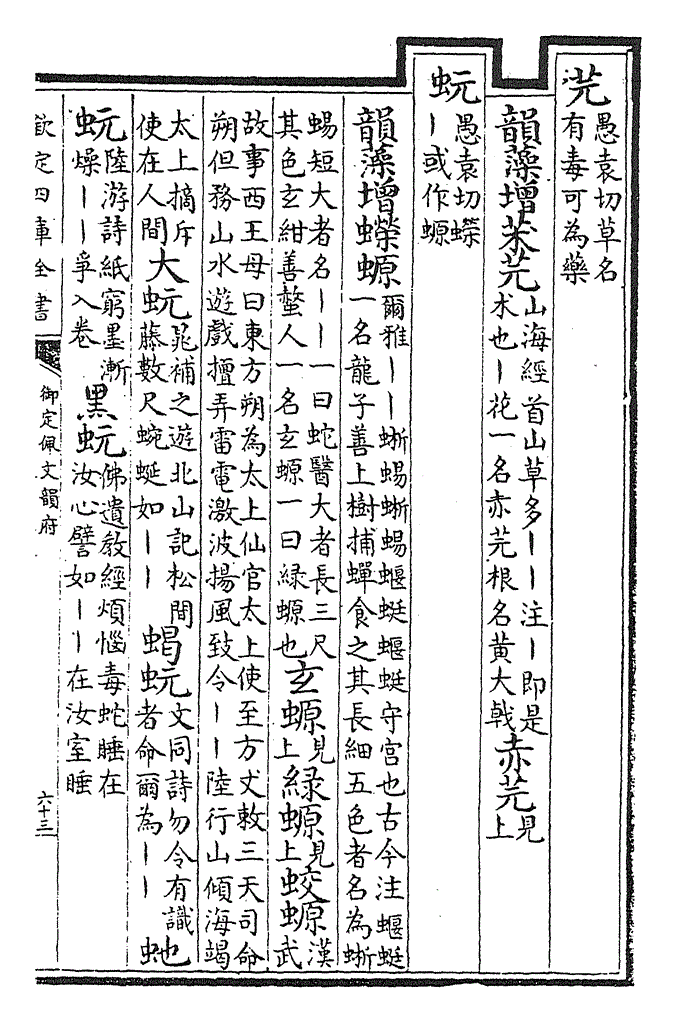 芫愚袁切草名
有毒可為藥
韻藻增苿芫山海經首山草多丨丨注丨即是
术也丨花一名赤芫根名黃大戟赤芫見
上
蚖愚袁切蠑
丨或作螈
韻藻增蠑螈爾雅丨丨蜥蜴蜥蜴蝘蜓蝘蜓守宮也古今注蝘蜓
一名龍子善上樹捕蟬食之其長細五色者名為蜥
蜴短大者名丨丨一曰蛇醫大者長三尺
其色玄紺善螫人一名玄螈一曰綠螈也玄螈見上綠螈見上蛟螈漢
武
故事西王母曰東方朔為太上仙官太上使至方丈敕三天司命
朔但務山水遊戲擅弄雷電激波揚風致令丨丨陸行山傾海竭
太上摘斥
使在人間大蚖晁補之遊北山記松間
藤數尺蜿蜒如丨丨蝎蚖文同詩勿令有識
者命爾為丨丨虵
蚖陸游詩紙窮墨漸
燥丨丨爭入卷黑蚖佛遺敎經煩惱毒蛇睡在
汝心譬如丨丨在汝室睡
欽定四庫全書
御定佩文韻府
六十三